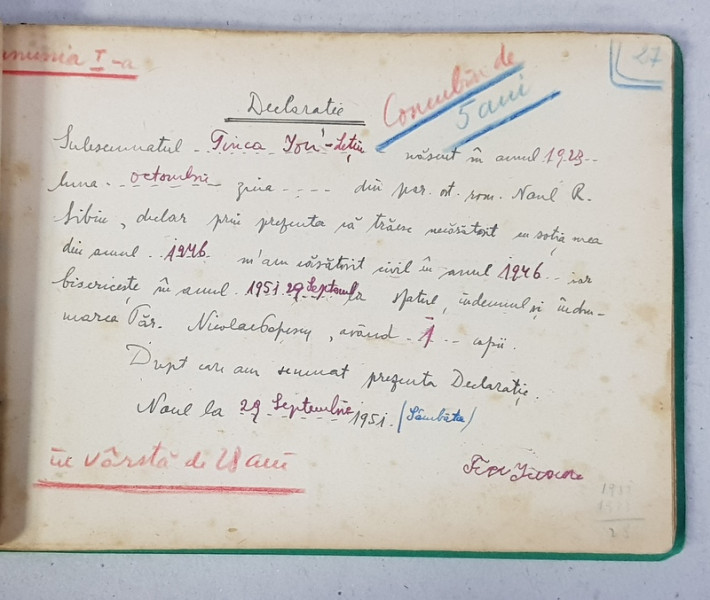 cununia I-a
27
Concubin de
5 ani
Declaratie
Subsemnatul Tinca Ion - născut în anul 1923
luna octombrie ziua din par. ort. rom. Noul R.
Sibiu, declar prin prezenta că trăesc necăsătorit cu soția mea
din anul 1946 m'am căsătorit civil în anul 1946 iar
bisericește în anul 1951 29 Septembrie la sfatul, îndemnul și îndru-
marea Păr. Nicolae Popescu, având 1 copii.
Drept care am semnat prezenta Declarație.
Noul la 29 Septembrie 1951. (Sâmbăta)
în vârstă de 28 ani